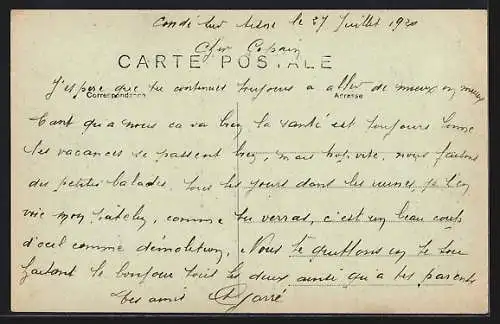 Condé sur Aisne le 27 Juillet 1920
Cher Copain
CARTE POSTALE
J'espère que tu continues toujours a aller de mieux en mieux
Correspondance Adresse
tant qu'a nous ca va bien la santé est toujours bonne
les vacances se passent bien, mais trop vite, nous faisons
des petites balades, tous les jours dans les ruines,
mon comme tu verras, c'est un beau coup
d'œil comme démolition, Nous te quittons en te
souhaitant le bonjour tous les deux ainsi qu'a tes parents
tes amis